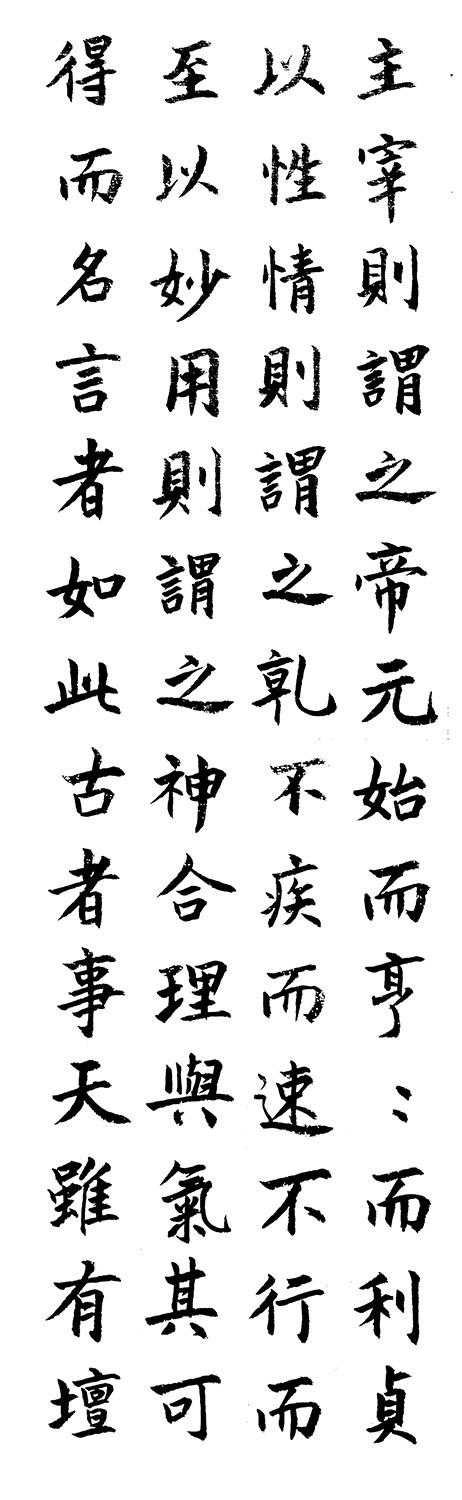 主宰則謂之帝元始而亨〻而利貞
以性情則謂之乾不疾而速不行而
至以妙用則謂之神合理與氣其可
得而名言者如此古者事天雖有壇